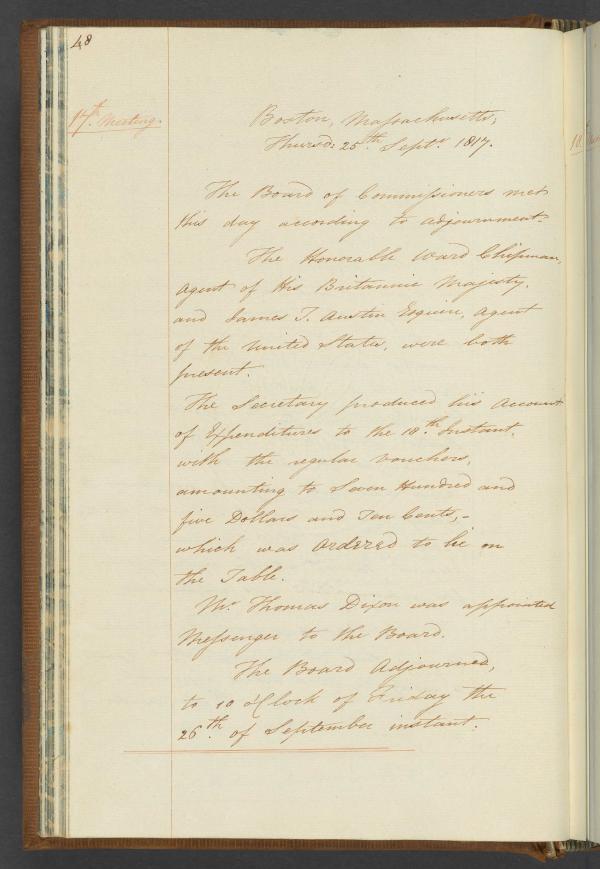 48
17th Meeting.
Boston, Massachusetts,
Thursd: 25th Septr 1817.
The Board of Commissioners met
this day according to adjournment.
The Honorable Ward Chipman,
Agent of His Britannic Majesty,
and James T. Austin Esquire, Agent
of the United States, were both
present.
The Secretary produced his Account
of Expenditures to the 18th Instant,
with the regular vouchers,
amounting to Seven Hundred and
five Dollars and Ten Cents,-
which was Ordered to lie on
the Table.
Mr Thomas Dixon was appointed
Messenger to the Board.
The Board Adjourned,
to 10 o'Clock of Friday the
26th of September instant.